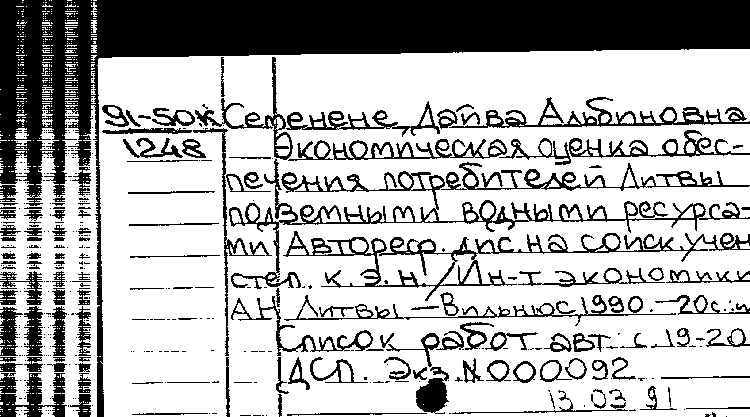 91-50ж Сетенене, Дайва Альбиновна
1248 Экономическая оценка обес-
печения потребителей Литвы
подземными водными ресурса-
ми: Автореф. дис. на соиск. учен
степ. к. э. н. / Ин-т экономики
АН Литвы. — Вильнюс, 1990. — 20 с.: и
Список работ авт. с. 19-20
ДСП. Экз. N 000092
13.03.91